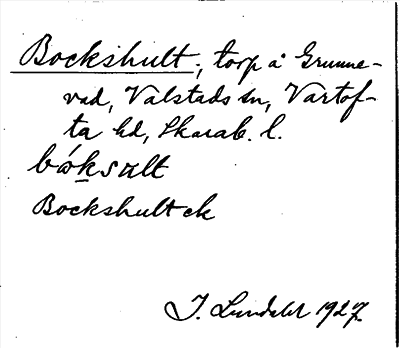 Bockshult, torp å Grunne-
vad, Valstads sn, Vartof-
ta hd, Skarab. l.
bóksult
Bockshult ek
J. Lundahl 1927.